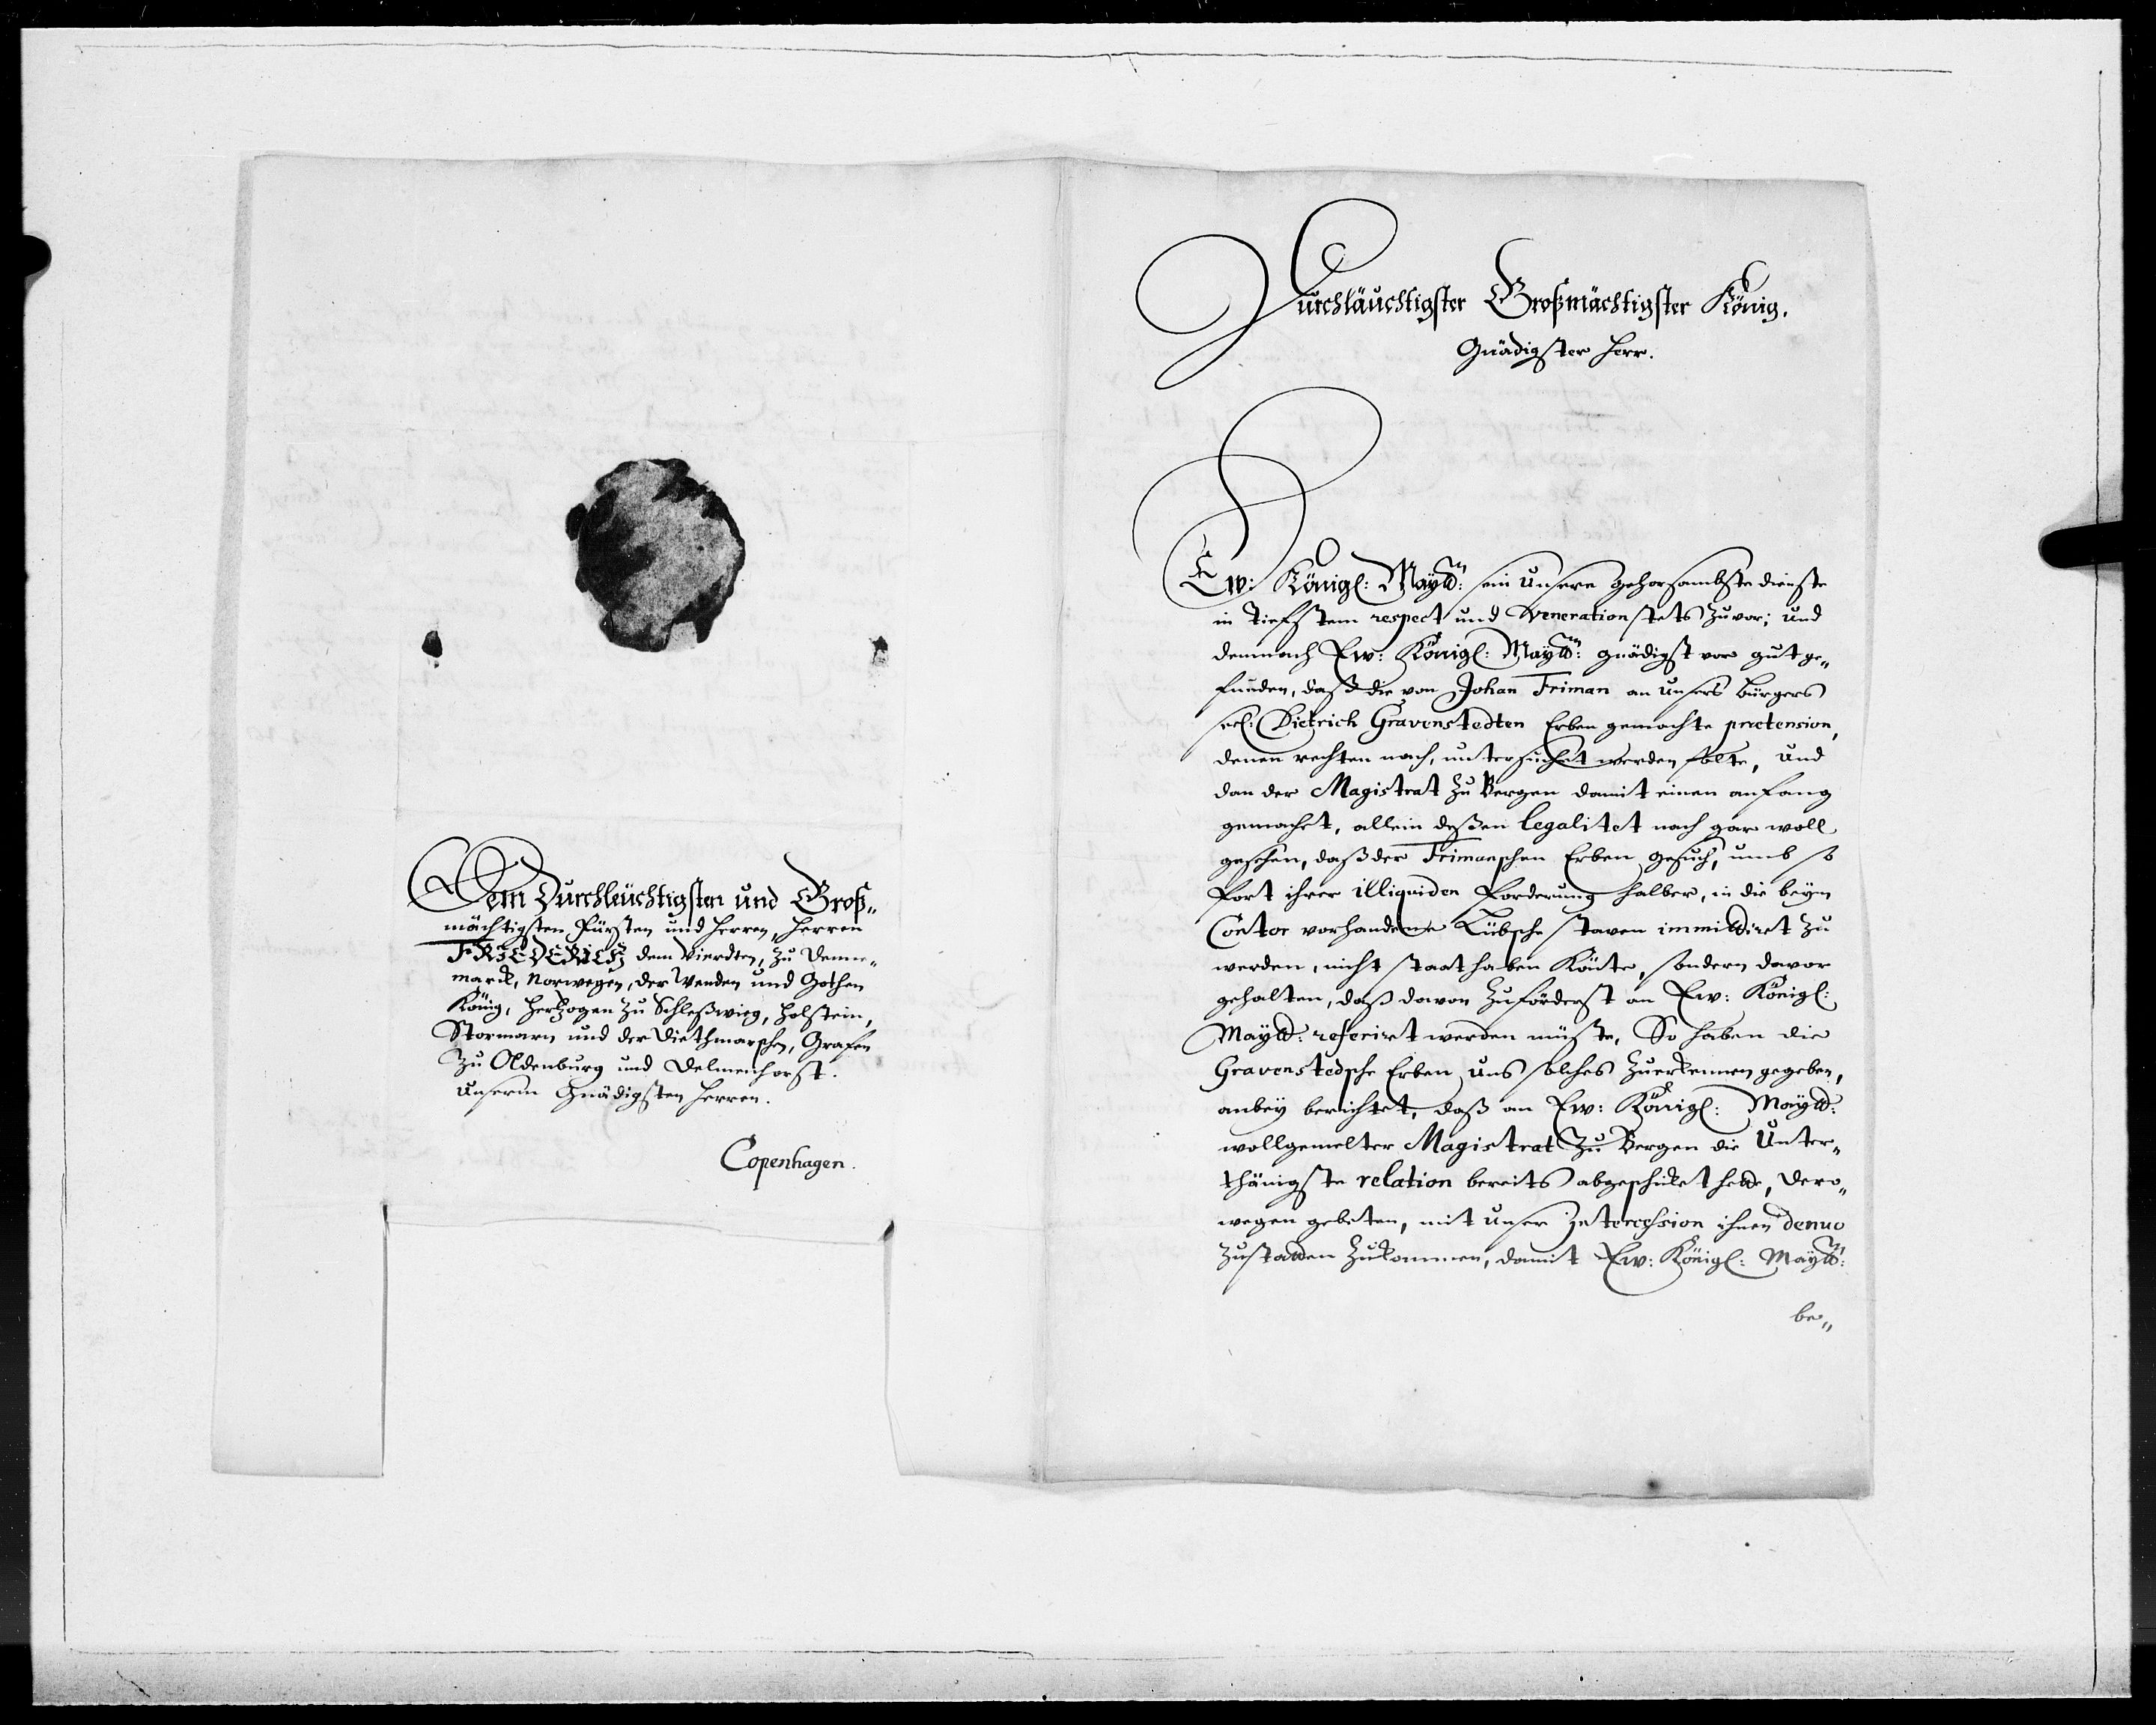 Dem Durchleüchtigsten und Groß„
mächtigsten Fürsten und Herren, Herren
FRIEDERICH dem Vierdten, zu Denne„
marck, Norwegen, der Wenden und Gothen
König, Hertzogen zu Schleßwieg, Holstein,
Stormarn und der Diethmarschen, Grafen
zu Oldenburg und Delmenhorst.
Unserm Gnädigsten Herren.
Copenhagen.
Durchläuchtigster Großmächtigster König.
Gnädigster Herr.
Ew: Königl: Maytt: sein unsere gehorsambste dienste
in tiefstem respect und veneration stets zuvor; und
demnach Ew: Königl: Maytt: gnädigst vor gut ge„
funden, daß die von Johan Friman an unsers bürgers
seel: Dietrich Gravenstedten Erben gemachte prætension,
denen rechten nach, untersuchet werden solte, und
dan der Magistrat zu Bergen damit einen anfang
gemachet, allein deßen legalitet nach gar woll
gesehen, daß der Frimanschen Erben gesuch, umb so
fort ihrer illiquiden Forderung halber, in die beym
Contor vorhandene Lübsche staven immittiret zu
werden, nicht staat haben könte, sondern davor
gehalten, daß davon zuförderst an Ew: Königl:
Maytt: referiret werden müste, So haben die
Gravenstedsche Erben uns solches zuerkennen gegeben,
anbey berichtet, daß an Ew: Königl: Maytt:
wollgemelter Magistrat zu Bergen die Unter„
thänigste relation bereits abgeschicket hette, dero„
wegen gebeten, mit unser Intercession ihnen denuo
zustatten zukommen, damit Ew: Königl: Maytt:
be„